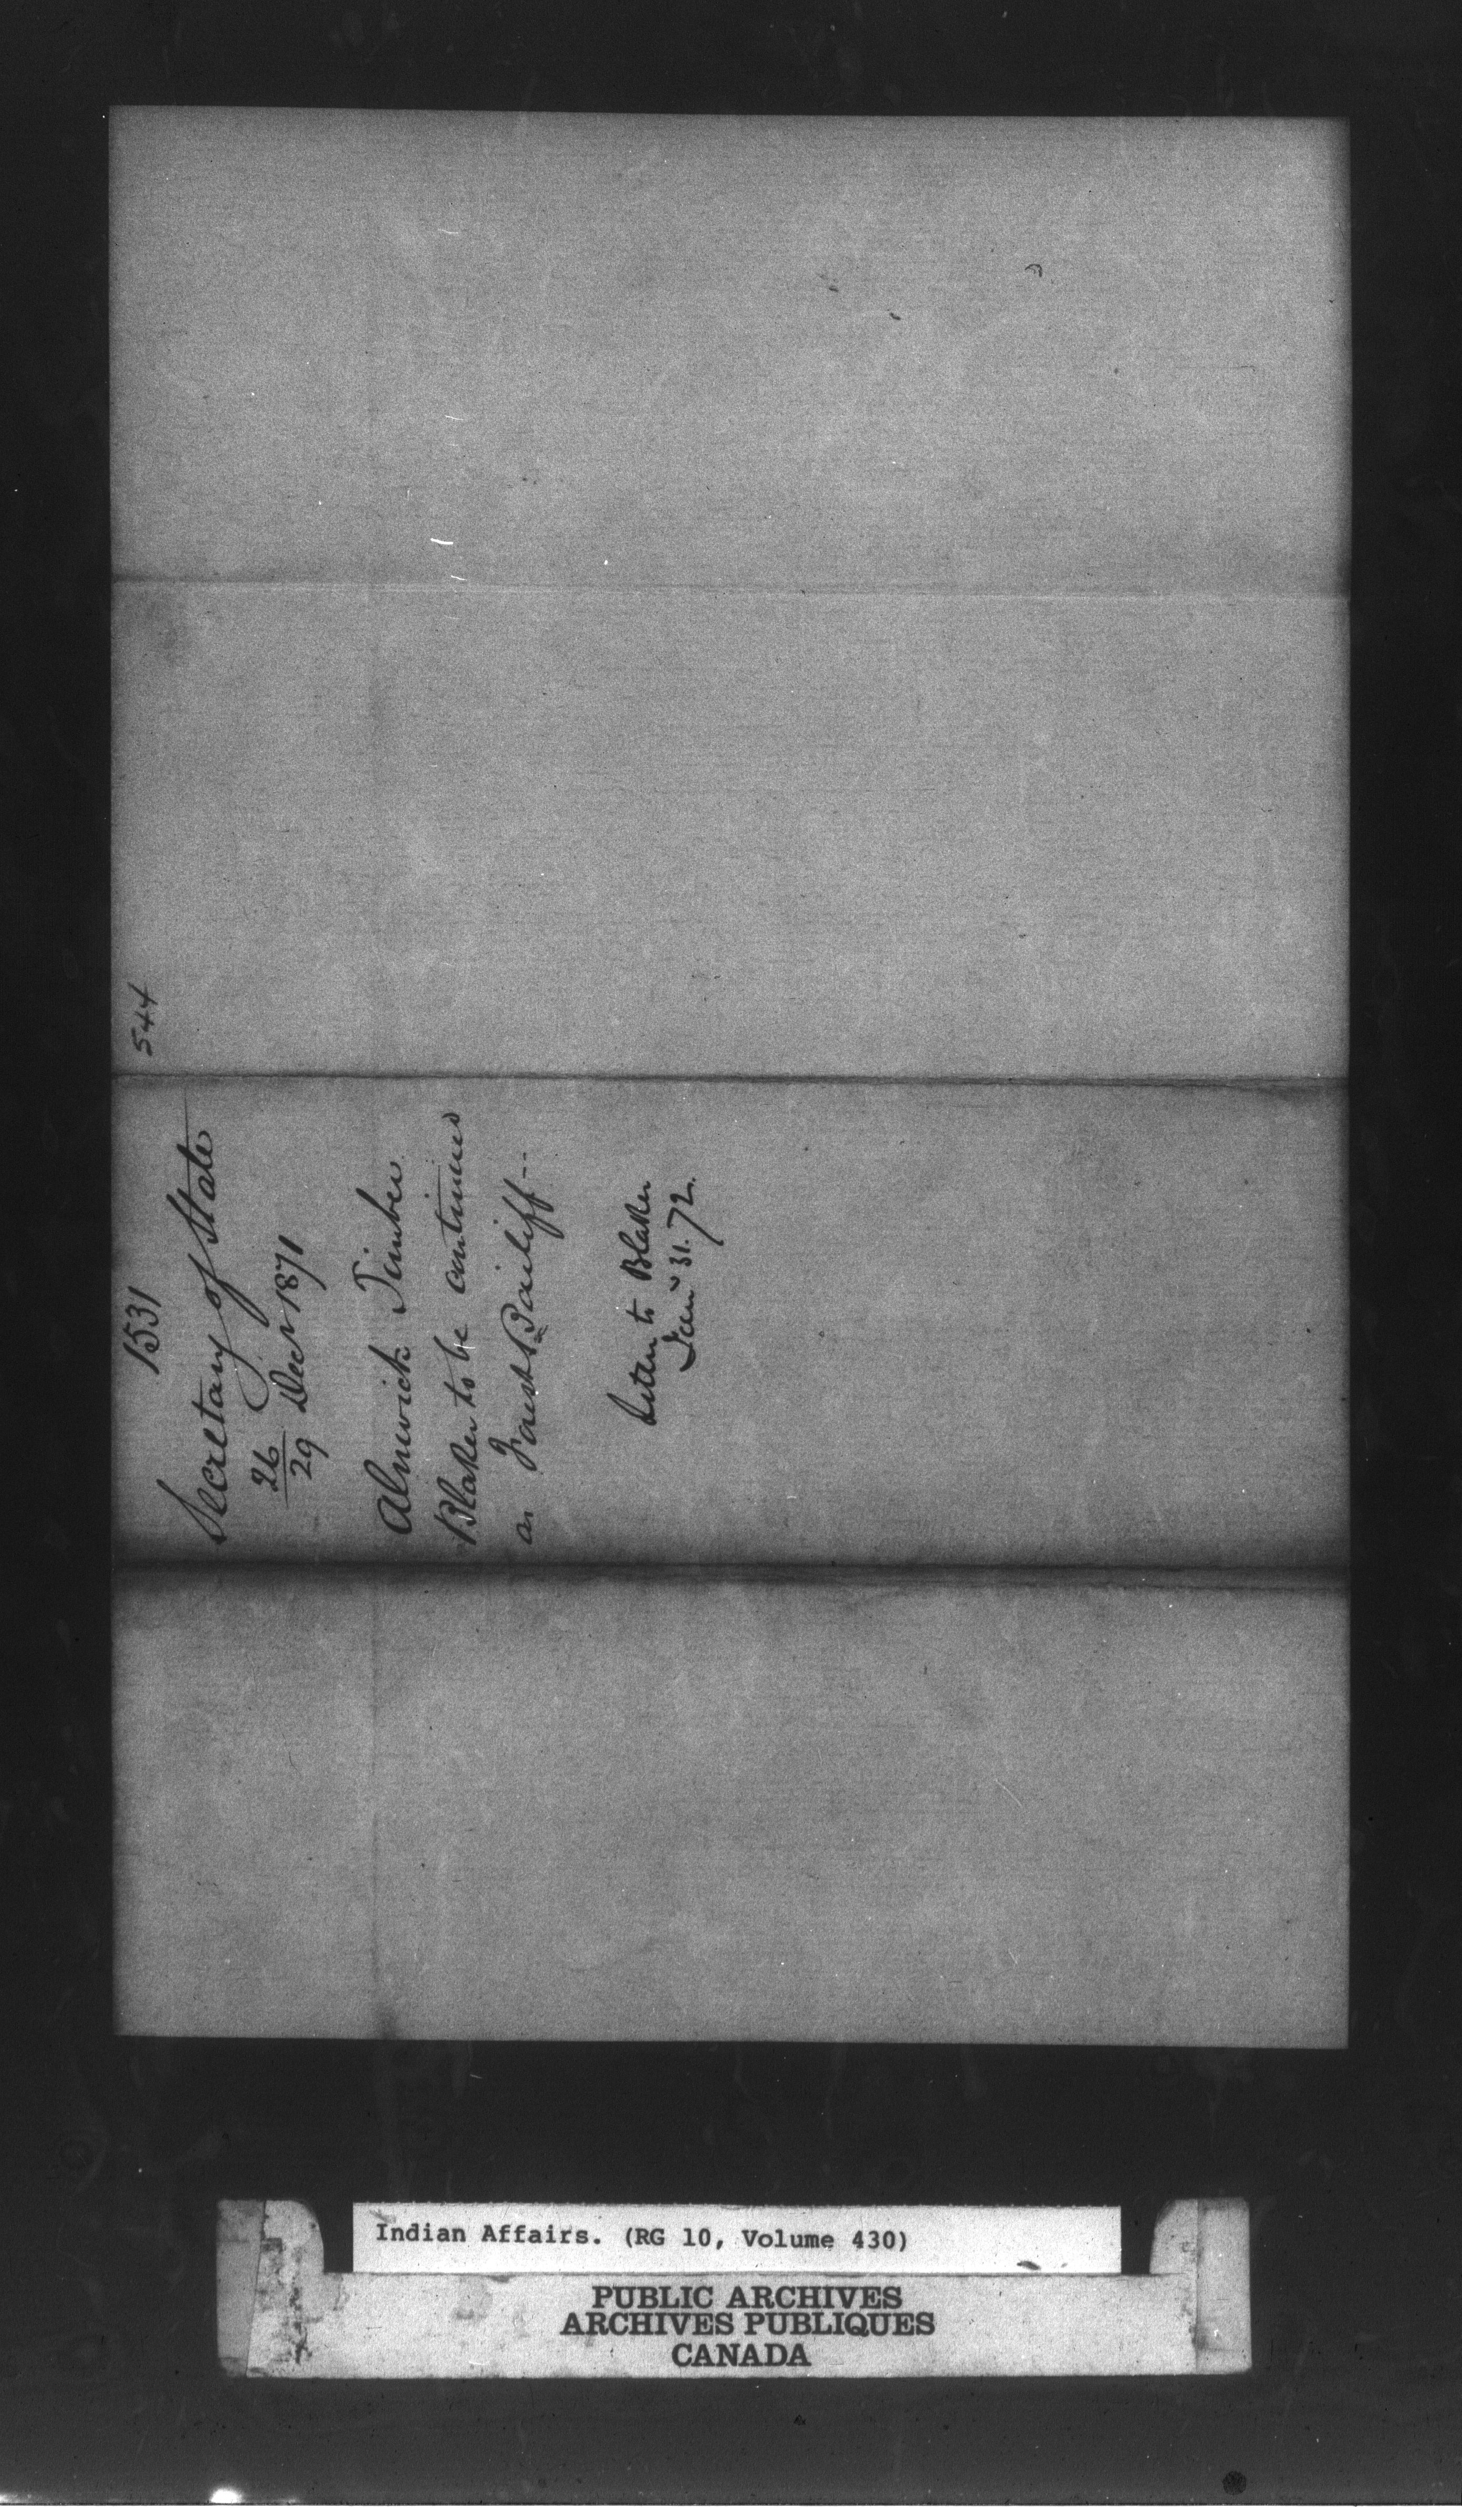 544
1531
Secretary of State
26
29 Decr 1871
Alnwick Timber
Blaker to be continued
as Forest Bailiff--
Letter to Blaker
Jany 31. 72.
Indian Affairs. (RG 10, Volume 430)
PUBLIC ARCHIVES
ARCHIVES PUBLIQUES
CANADA